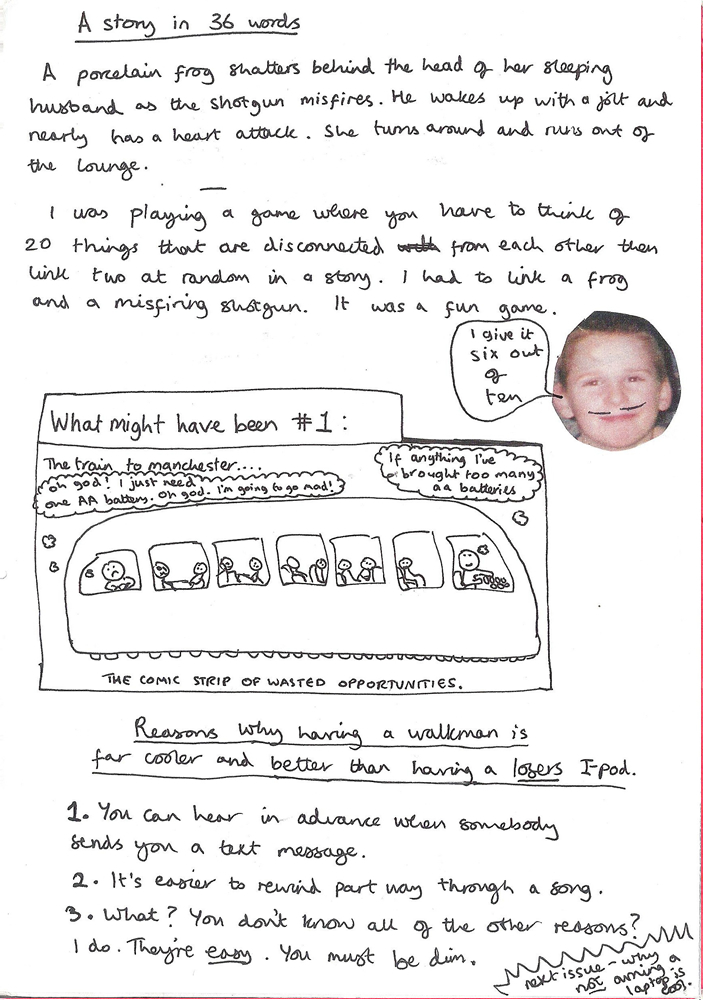 A story in 36 words
A porcelain frog shatters behind the head of her sleeping
husband as the shotgun misfires. He wakes up with a jolt and
nearly has a heart attack. She turns around and runs out of
the lounge.
I was playing a game where you have to think of
20 things that are disconnected from each other then
link two at random in a story. I had to link a frog
and a misfiring shotgun. It was a fun game.
I give it
six out
of
ten
What might have been #1:
The train to manchester....
oh god! I just need
one AA battery. oh god. I'm going to go mad!
If anything I've
brought too many
aa batteries
THE COMIC STRIP OF WASTED OPPORTUNITIES.
Reasons why having a walkman is
far cooler and better than having a losers I-pod.
1. You can hear in advance when somebody
sends you a text message.
2. It's easier to rewind part way through a song.
3. What? You don't know all of the other reasons?
I do. They're easy. You must be dim.
next issue - why
not owning a
laptop is
cool.